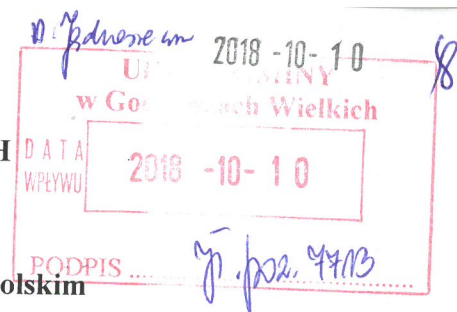 2018 -10- 10
U NY
w Go ach Wielkich
H
DATA
WPŁYWU
2018 -10- 10
PODPIS
poz. 7713
olskim